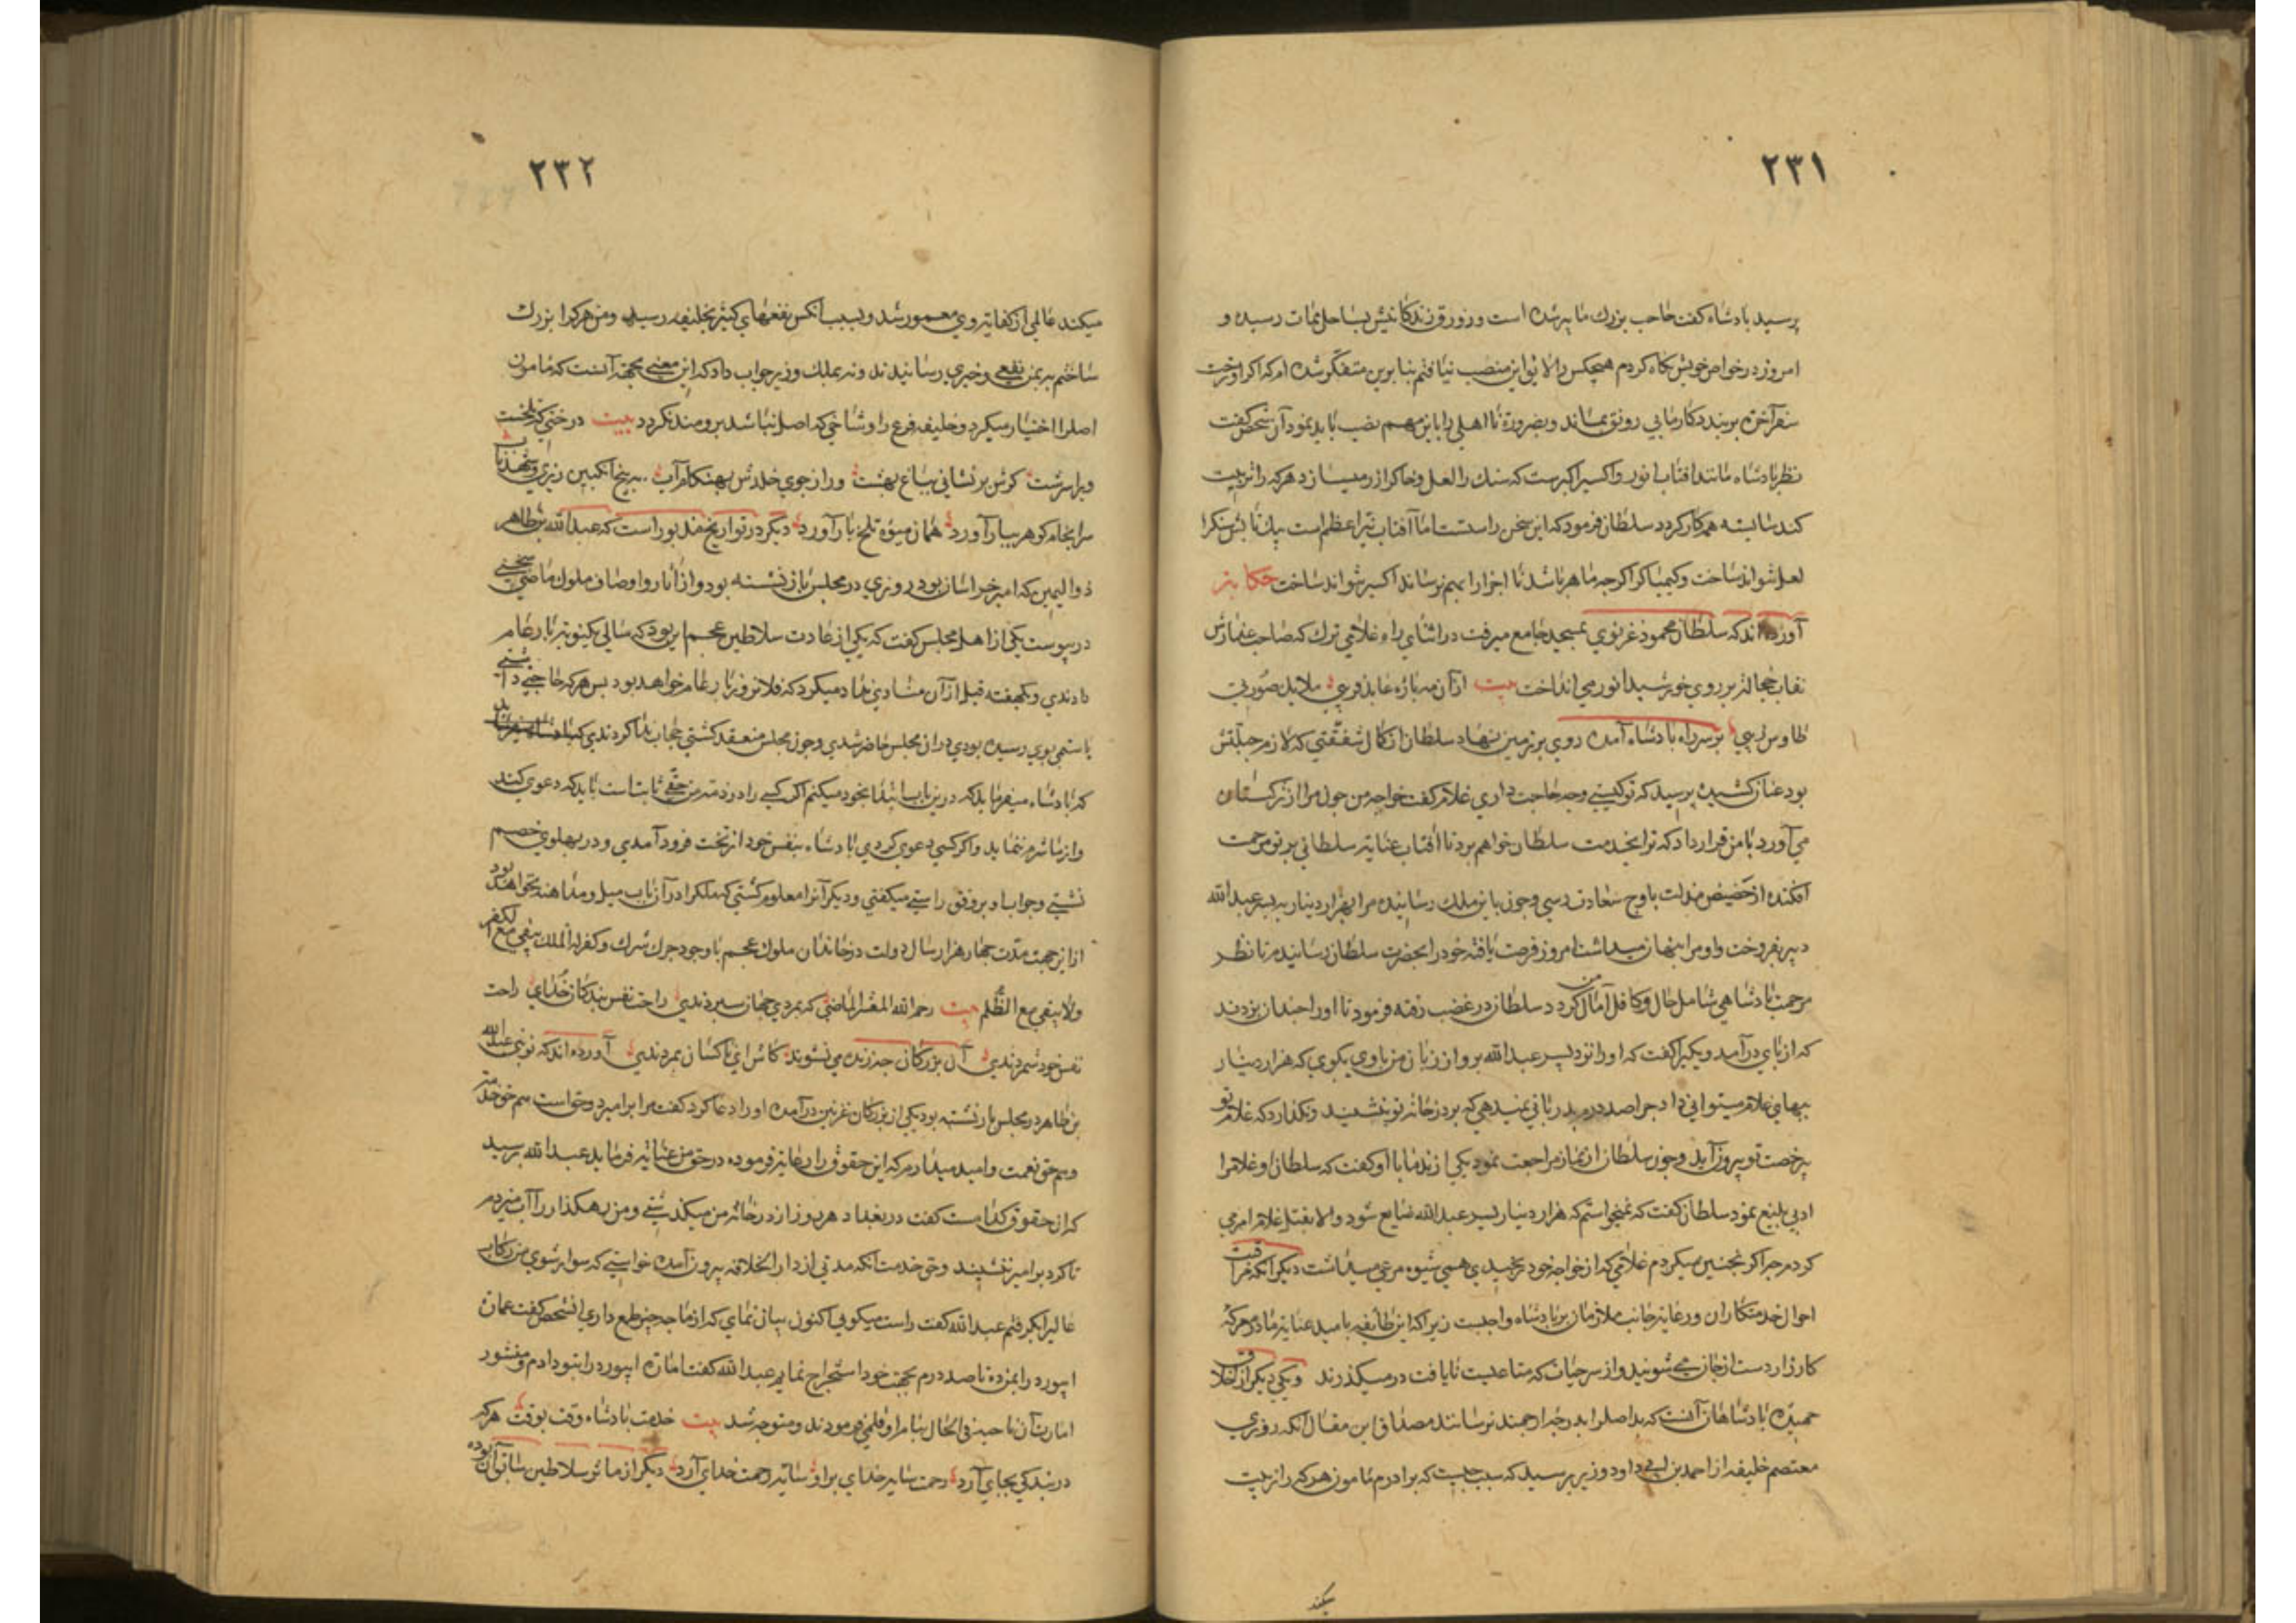 ٢٣١
پرسید بادشاه کفت حاجب بزرك ما پیر شده است وزورق زندکانیش بساحل ممات رسیده و
امروز در خواص خویش نکاه کردم هیچکس را لایق این منصب نیافتم بنابرین متفکر شده ام که اکر او رخت
سفر آخرة بربندد کار ما بی رونق بماند وبضرورة نا اهلی را باین مهم نصب باید نمود آن شخص کفت
نظر بادشاه مانند افتاب انور واکسیر اکبرست که سنك را لعل وخاك را زر میسازد هرکه را تربیت
کند شایسته همه کار کردد سلطان فرمود که این سخن راستست اما آفتاب نیر اعظم است بی تابش سنك را
لعل نتواند ساخت وکیمیاکر اکرچه ماهر باشد تا اجزا را بهم نرساند اکسیر نتواند ساخت حکایة
آورده اند که سلطان محمود غزنوی بمسجد جامع میرفت در اثنای راه غلامی ترك که صاحب عذارش
نقاب خجالت بر روی خورشید انور می انداخت بیت ازآن مه پارۀ عابد فریبی ملایك صورتی
طاوس زیبی بر سر راه بادشاه آمده روی بر زمین نهاد سلطان از کمال شفقتی که لازم جبلتش
بود عنان کشیده پرسید که تو کیستی وچه حاجت داری غلام کفت خواجه من چون مرا از ترکستان
می آورد با من قرار داد که ترا بخدمت سلطان خواهم برد تا آفتاب عنایة سلطانی پرتو مرحمت
افکنده از حضیض مذلت باوج سعادت رسی وچون باین ملك رسانیده مرا بهزار دینار به پسر عبدالله
دبیر بفروخت واو مرا پنهان میداشت امروز فرصت یافته خود را بحضرت سلطان رسانیدم تا نظر
مرحمت بادشاهی شامل حال وکافل آمال من کردد سلطان در غضب رفته فرمود تا او را چندان بزدند
که از پای درآمد ویکی را کفت که او را نزد پسر عبدالله برو از زبان من باوی بکوی که هزار دینار
ببهای غلام میتوانی داد چرا صد درم بدربانی نمیدهی که بر در خانه تو بنشیند ونکذارد که غلام تو
بی رخصت تو بیرون آید وچون سلطان از نماز مراجعت نمود یکی از ندما با او کفت که سلطان او غلام را
ادبی بلیغ نمود سلطان کفت که نمیخواستم که هزار دینار پسر عبدالله ضایع شود والا بقتل غلام امر می
کردم چرا اکر نه چنین میکردم غلامی که از خواجه خود برنجیدی همین شیوه مرعی میداشت دیکر آنکه مراقبت
احوال خدمتکاران ورعایة جانب ملازمان بر بادشاه واجبست زیرا که این طائفه بامید عنایة ما در معرکه
کارزار دست از جان می شویند واز سر حیات که متاعیست نایافت در میکذرند ویکی دیکر از اخلاق
حمیدۀ بادشاهان آنست که بد اصل را بدرجه ارجمند نرسانند مصداق این مقال آنکه روزی
معتصم خلیفه از احمد بن ابی داود وزیر پرسید که سبب چیست که برادرم مامون هرکه را تربیت
میکند
٢٣٢
میکند عالمی از کفایة وی معمور شد وبسبب آنکس نفعهای کثیر بخلیفه رسید ومن هرکرا بزرك
ساختم نه بمن نفعی وخیری رسانیدند ونه بملك وزیر جواب داد که این معنی بجهة آنست که مامون
اصل را اختیار میکرد وخلیفه فرع را وشاخی که اصل نباشد برومند نکردد بیت درختی که تلخست
ویرا سرشت کرش برنشانی بباغ بهشت ور از جوی خلدش بهنکام آب به بیخ انکبین ریزی وشهد ناب
سرانجام کوهر ببار آورد همان میوۀ تلخ بار آورد دیکر در تواریخ مذبور است که عبدالله بن طاهر
ذو الیمین که امیر خراسان بود روزی در مجلس باز نشسته بود واز آثار واوصاف ملوك ماضی سخنی
در پیوست یکی از اهل مجلس کفت که یکی از عادت سلاطین عجم این بود که سالی یکنوبة بار عام
دادندی ویکهفته قبل از آن منادی ندا میکرد که فلان روز بار عام خواهد بود پس هرکه حاجتی داشتی
یا ستمی بوی رسیده بودی در آن مجلس حاضر شدی وچون مجلس منعقد کشتی حجاب ندا کردندی
که بادشاه میفرماید که درین باب ابتدا بخود میکنم اکر کسی را در ذمه من حقی ثابت است باید که دعوی کند
واز ما شرم ننماید واکر کسی دعوی کردی بادشاه بنفس خود از تخت فرود آمدی ودر پهلوی خصم
نشستی وجواب او بر وفق راستی میکفتی ودیکر آنرا معلوم کشتی که ملك را در آن باب میل ومداهنه نخواهد بود
ازین جهت مدت چهار هزار سال دولت در خاندان ملوك عجم با وجود جرك شرك وکفر که الملك یبقی مع الکفر
ولا یبقی مع الظلم بیت رحم الله المعشر الماضی که بمردی جهان سپردندی راحت نفس بندکان خدای راحت
نفس خود شمردندی آن بزرکان چه زنده می نشوند کاش این ناکسان بمردندی آورده اند که نوبتی عبدالله
بن طاهر در مجلس بار نشسته بود یکی از بزرکان غزنین درآمده او را دعا کرد کفت مرا بر امیر دو حق است هم حق خدمة
وهم حق نعمت وامید میدارم که این حقوق را رعایة فرموده در حق من عنایة فرماید عبدالله پرسید
که این حقوق کدامست کفت در بغداد هر روز از در خانه من میکذشتی ومن رهکذار را آب میزدم
تا کرد بر امیر ننشیند وحق خدمت آنکه مدتی از دار الخلافه بیرون آمده خواستی که سوار شوی من رکاب
عالیرا بکرفتم عبدالله کفت راست میکوی اکنون بیان نمای که از ما چه چیز طمع داری آنشخص کفت عمان
ابیورد را بمن ده تا صد درم بجهت خود استخراج نمایم عبدالله کفت امارة ابیورد را بتو دادم ومنشور
امارت آن ناحیه فی الحال بنام او قلمی فرمودند ومتوجه شد بیت خدمت بادشاه وقت بوقت هرکه
در بندکی بجای آرد رحمت سایه خدای برو سایه رحمت خدای آرد دیکر از مآثر سلاطین سابق آن بوده